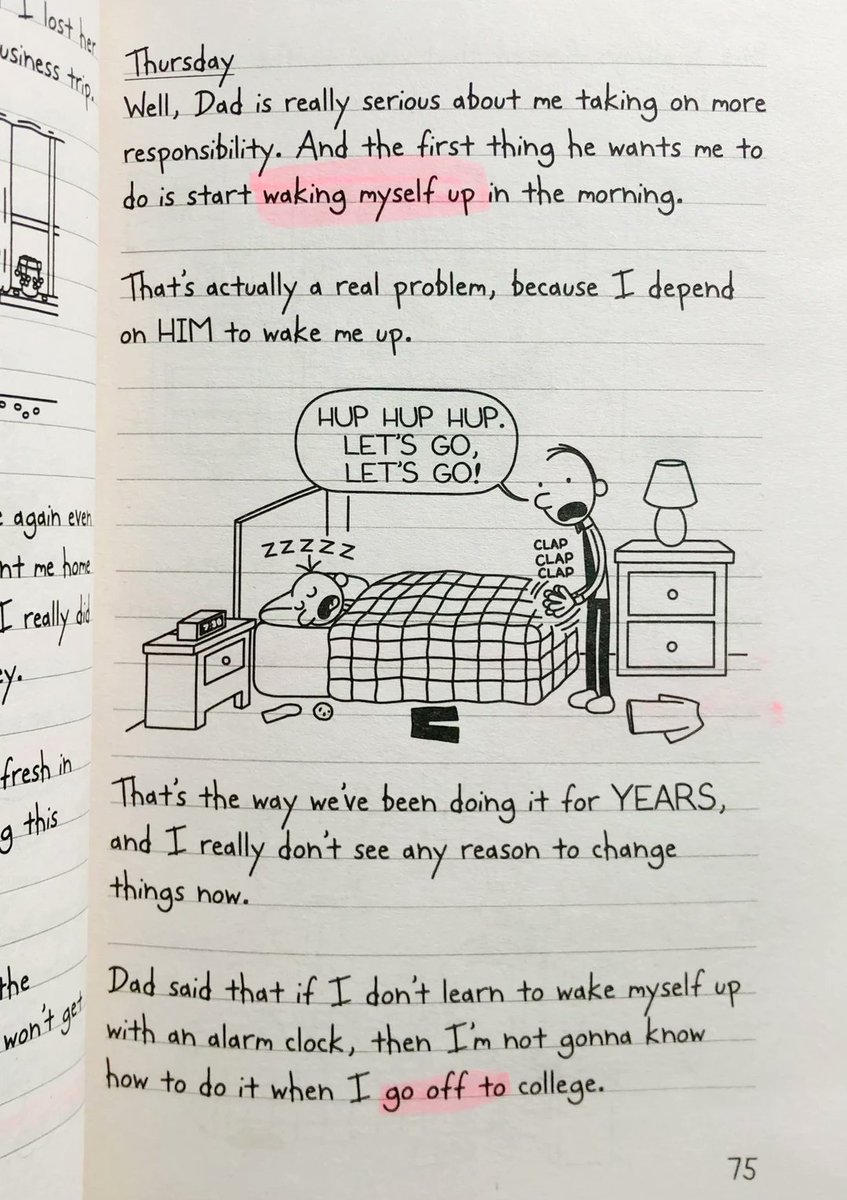 I lost her
usiness trip.
again even
nt me home
I really did
ey.
fresh in
g this
the
won't get
Thursday
Well, Dad is really serious about me taking on more
responsibility. And the first thing he wants me to
do is start waking myself up in the morning.
That's actually a real problem, because I depend
on HIM to wake me up.
HUP HUP HUP.
LET'S GO,
LET'S GO!
ZZZZZ
CLAP
CLAP
CLAP
That's the way we've been doing it for YEARS,
and I really don't see any reason to change
things now.
Dad said that if I don't learn to wake myself up
with an alarm clock, then I'm not gonna know
how to do it when I go off to college.
75